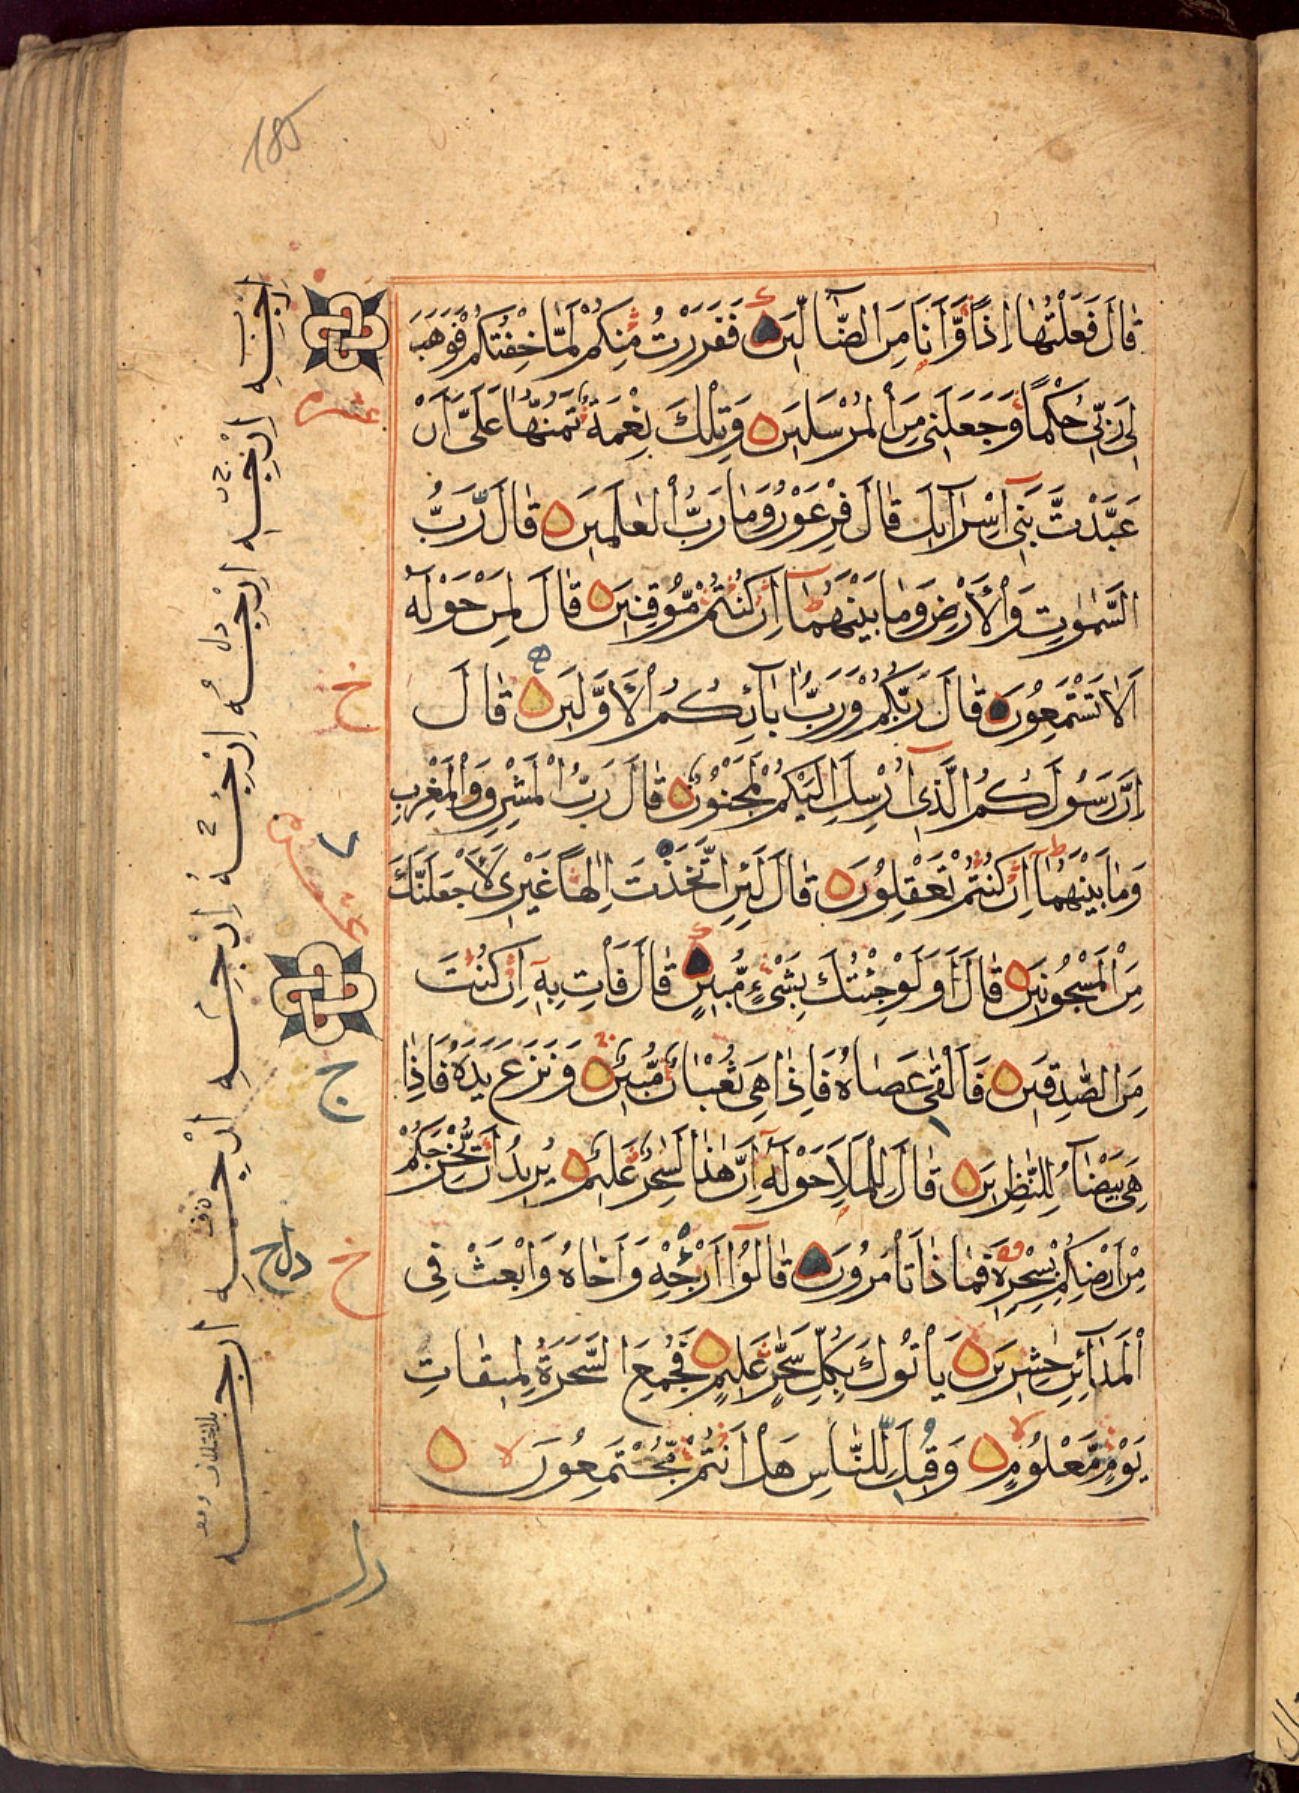 185
قَالَ فَعَلْتُهَا إِذًا وَّأَنَا مِنَ الضَّآلِّينَ فَفَرَرْتُ مِنْكُمْ لَمَّا خِفْتُكُمْ فَوَهَبَ
لِي رَبِّي حُكْمًا وَّجَعَلَنِي مِنَ الْمُرْسَلِينَ وَتِلْكَ نِعْمَةٌ تَمُنُّهَا عَلَيَّ أَنْ
عَبَّدْتَّ بَنِي إِسْرَآئِلَ قَالَ فِرْعَوْنُ وَمَا رَبُّ الْعٰلَمِينَ قَالَ رَبُّ
السَّمٰوٰتِ وَالْأَرْضِ وَمَا بَيْنَهُمَا إِنْ كُنْتُمْ مُّوقِنِينَ قَالَ لِمَنْ حَوْلَهُ
أَلَا تَسْتَمِعُونَ قَالَ رَبُّكُمْ وَرَبُّ اٰبَآئِكُمُ الْأَوَّلِينَ قَالَ
إِنَّ رَسُولَكُمُ الَّذِي أُرْسِلَ إِلَيْكُمْ لَمَجْنُونٌ قَالَ رَبُّ الْمَشْرِقِ وَالْمَغْرِبِ
وَمَا بَيْنَهُمَا إِنْ كُنْتُمْ تَعْقِلُونَ قَالَ لَئِنِ اتَّخَذْتَ إِلٰهًا غَيْرِي لَأَجْعَلَنَّكَ
مِنَ الْمَسْجُونِينَ قَالَ أَوَلَوْ جِئْتُكَ بِشَيْءٍ مُّبِينٍ قَالَ فَأْتِ بِهِ إِنْ كُنْتَ
مِنَ الصّٰدِقِينَ فَأَلْقٰى عَصَاهُ فَإِذَا هِيَ ثُعْبَانٌ مُّبِينٌ وَنَزَعَ يَدَهُ فَإِذَا
هِيَ بَيْضَآءُ لِلنّٰظِرِينَ قَالَ لِلْمَلَإِ حَوْلَهُ إِنَّ هٰذَا لَسٰحِرٌ عَلِيمٌ يُرِيدُ أَنْ يُّخْرِجَكُمْ
مِنْ أَرْضِكُمْ بِسِحْرِهِ فَمَاذَا تَأْمُرُونَ قَالُوا أَرْجِهْ وَأَخَاهُ وَابْعَثْ فِي
الْمَدَآئِنِ حٰشِرِينَ يَأْتُوكَ بِكُلِّ سَحَّارٍ عَلِيمٍ فَجُمِعَ السَّحَرَةُ لِمِيقَاتِ
يَوْمٍ مَّعْلُومٍ وَقِيلَ لِلنَّاسِ هَلْ أَنْتُمْ مُّجْتَمِعُونَ
عشر
خ
ج
خ